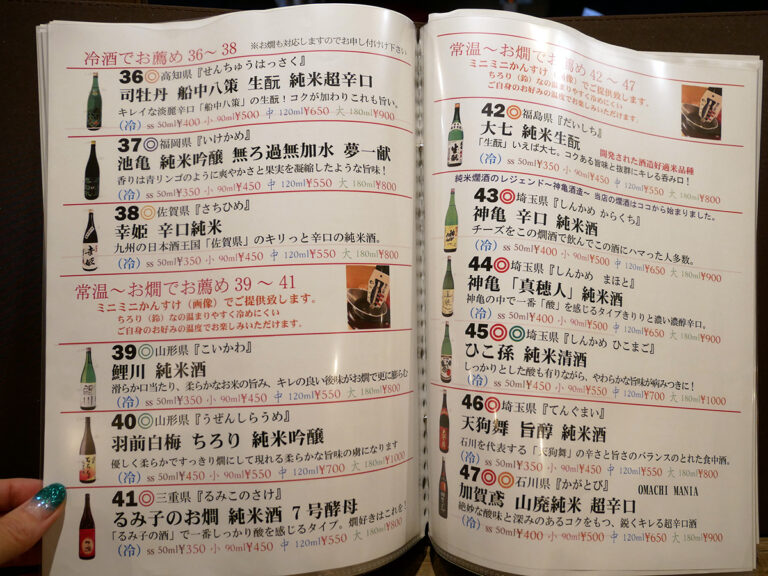 冷酒でお薦め 36～38 ※お燗も対応しますのでお申し付け下さい。
36◎高知県『せんちゅうはっさく』
司牡丹 船中八策 生酛 純米超辛口
キレイな淡麗辛口「船中八策」の生酛！コクが加わりこれも旨い。
(冷) ss 50ml¥400 小 90ml¥500 中 120ml¥650 大 180ml¥900
37◎福岡県『いけかめ』
池亀 純米吟醸 無ろ過無加水 夢一献
香りは青リンゴのように爽やかさと果実を凝縮したような旨味！
(冷) ss 50ml¥350 小 90ml¥450 中 120ml¥550 大 180ml¥800
38◎佐賀県『さちひめ』
幸姫 辛口純米
九州の日本酒王国「佐賀県」のキリっと辛口の純米酒。
(冷) ss 50ml¥350 小 90ml¥450 中 120ml¥550 大 180ml¥800
常温～お燗でお薦め 39～41
ミニミニかんすけ（画像）でご提供致します。
ちろり（錫）なの温まりやすく冷めにくい
ご自身のお好みの温度でお楽しみいただけます。
39◎山形県『こいかわ』
鯉川 純米酒
滑らか口当たり、柔らかなお米の旨み、キレの良い後味がお燗で更に膨らむ
(冷) ss 50ml¥350 小 90ml¥450 中 120ml¥550 大 180ml¥800
40◎山形県『うぜんしらうめ』
羽前白梅 ちろり 純米吟醸
優しく柔らかですっきり燗にして現れる柔らかな旨味の虜になります
(冷) ss 50ml¥450 小 90ml¥550 中 120ml¥700 大 180ml¥1000
41◎三重県『るみこのさけ』
るみ子のお燗 純米酒 7号酵母
「るみ子の酒」で一番しっかり酸を感じるタイプ。燗好きはこれを！
(冷) ss 50ml¥350 小 90ml¥450 中 120ml¥550 大 180ml¥800
常温～お燗でお薦め 42～47
ミニミニかんすけ（画像）でご提供致します。
ちろり（錫）なの温まりやすく冷めにくい
ご自身のお好みの温度でお楽しみいただけます。
42◎福島県『だいしち』
大七 純米生酛 開発された酒造好適米品種
「生酛」いえば大七。コクある旨味と抜群にキレる呑み口！
(冷) ss 50ml¥350 小 90ml¥450 中 120ml¥550 大 180ml¥800
純米燗酒のレジェンド～神亀酒造～ 当店の燗酒はココから始まりました。
43◎埼玉県『しんかめ からくち』
神亀 辛口 純米酒
チーズをこの燗酒で飲んでこの酒にハマった人多数。
(冷) ss 50ml¥400 小 90ml¥500 中 120ml¥650 大 180ml¥900
44◎埼玉県『しんかめ まほと』
神亀「真穂人」純米酒
神亀の中で一番「酸」を感じるタイプきりりと濃い濃醇辛口。
(冷) ss 50ml¥400 小 90ml¥500 中 120ml¥650 大 180ml¥900
45◎◎埼玉県『しんかめ ひこまご』
ひこ孫 純米清酒
しっかりとした酸も有りながら、やわらかな旨味が病みつきに！
(冷) ss 50ml¥450 小 90ml¥550 中 120ml¥700 大 180ml¥1000
46◎埼玉県『てんぐまい』
天狗舞 旨醇 純米酒
石川を代表する「天狗舞」の辛さと旨さのバランスのとれた食中酒。
(冷) ss 50ml¥350 小 90ml¥450 中 120ml¥550 大 180ml¥800
47◎◎石川県『かがとび』 OMACHI MANIA
加賀鳶 山廃純米 超辛口
絶妙な酸味と深みのあるコクをもつ、鋭くキレる超辛口酒
(冷) ss 50ml¥400 小 90ml¥500 中 120ml¥650 大 180ml¥900